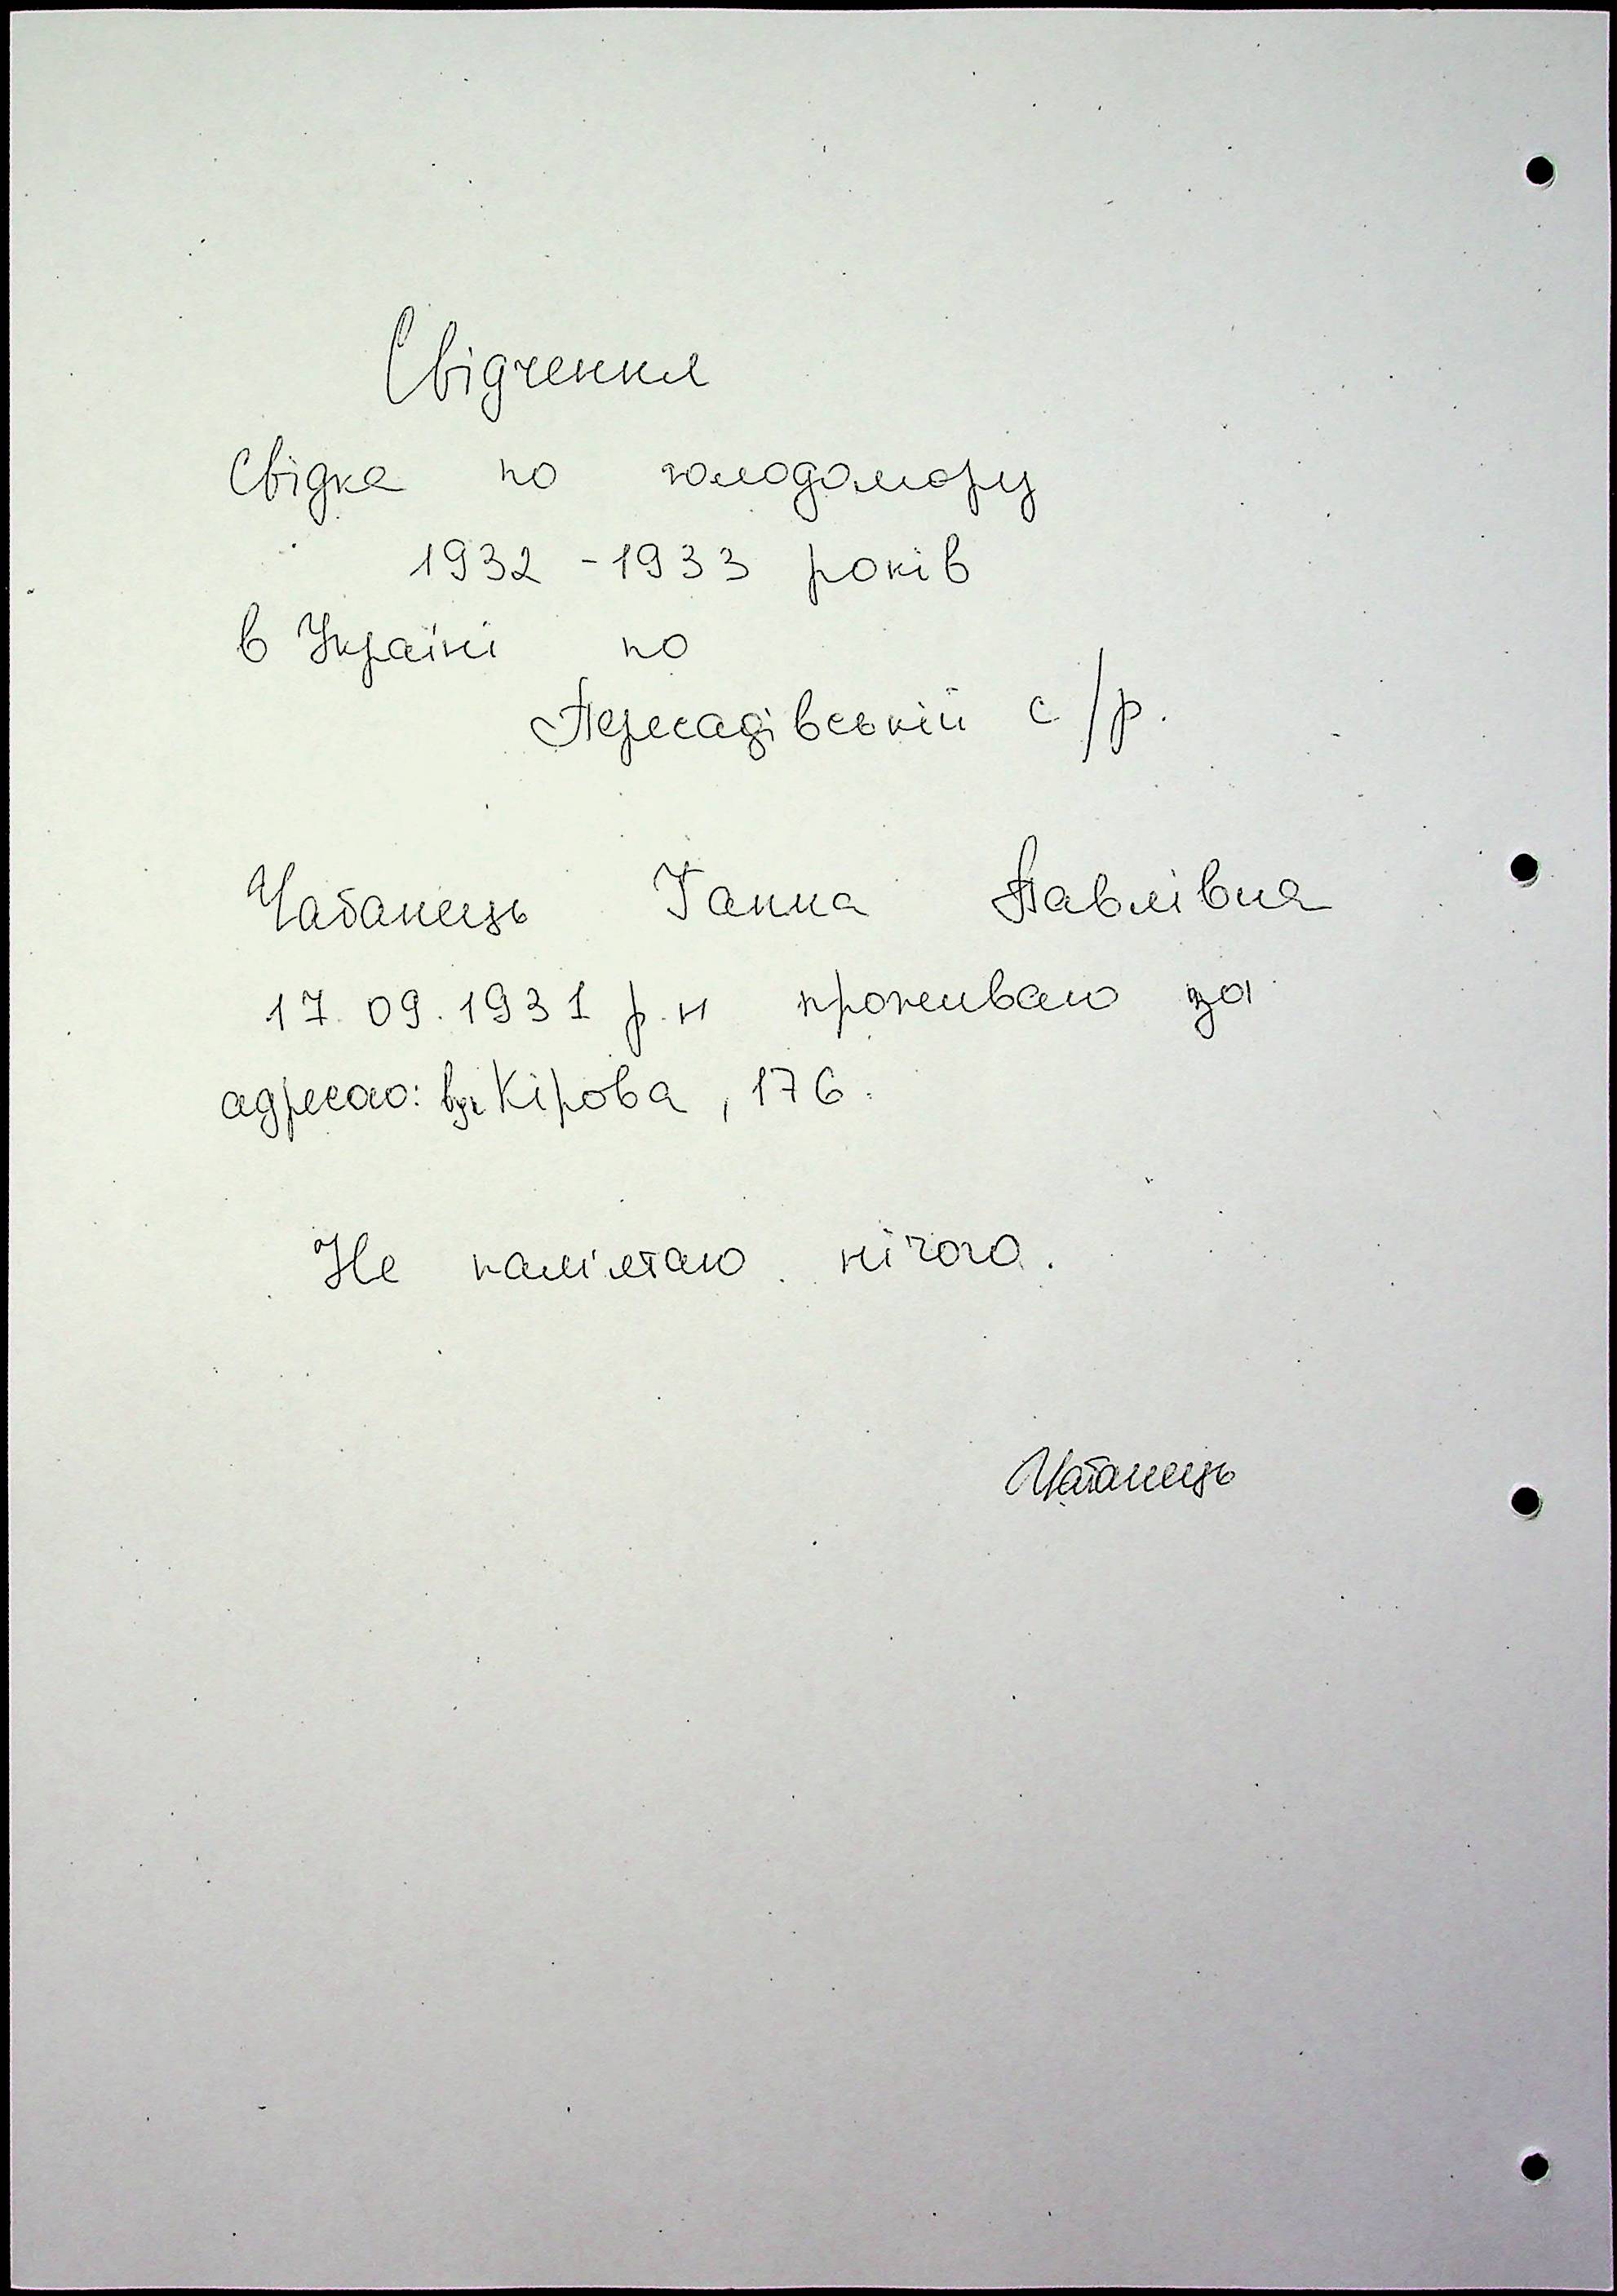 Свідчення
Свідка по голодомору
1932 - 1933 років
в Україні по
Пересадівській с/р.
Чабанець Ганна Павлівна
17.09.1931 р.н проживаю за
адресою: вул Кірова, 176.
Не пам'ятаю нічого.
Чабанець